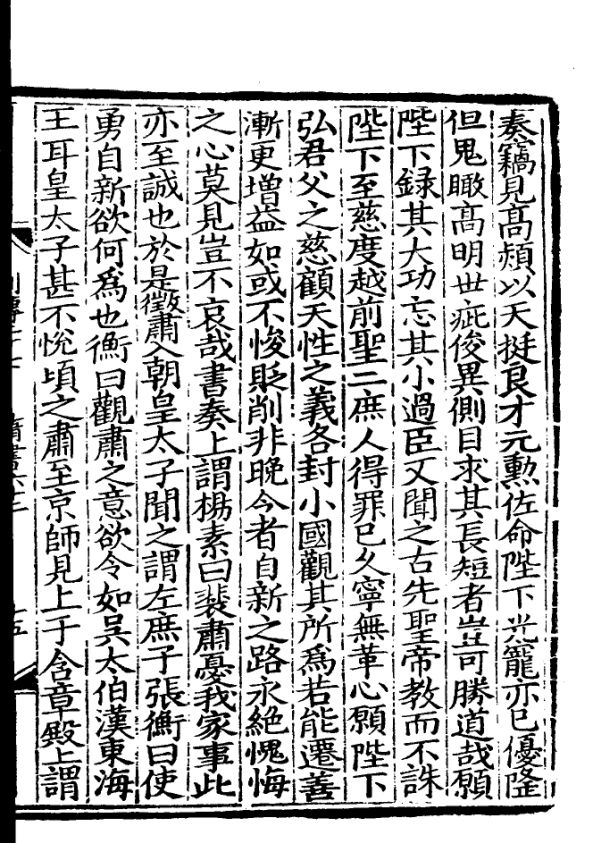 奏竊見髙熲以天挺良才元勲佐命陛下光寵亦已優隆
但鬼瞰髙明世疵俊異側目求其長短者豈可勝道哉願
陛下録其大功忘其小過臣又聞之古先聖帝教而不誅
陛下至慈度越前聖二庶人得罪已久寧無革心願陛下
弘君父之慈顧天性之義各封小國觀其所爲若能遷善
漸更增益如或不悛貶削非晚今者自新之路永絶愧悔
之心莫見豈不哀哉書奏上謂楊素曰裴肅憂我家事此
亦至誠也於是徵肅入朝皇太子聞之謂左庶子張衡曰使
勇自新欲何爲也衡曰觀肅之意欲令如吳太伯漢東海
王耳皇太子甚不悅頃之肅至京師見上于含章殿上謂